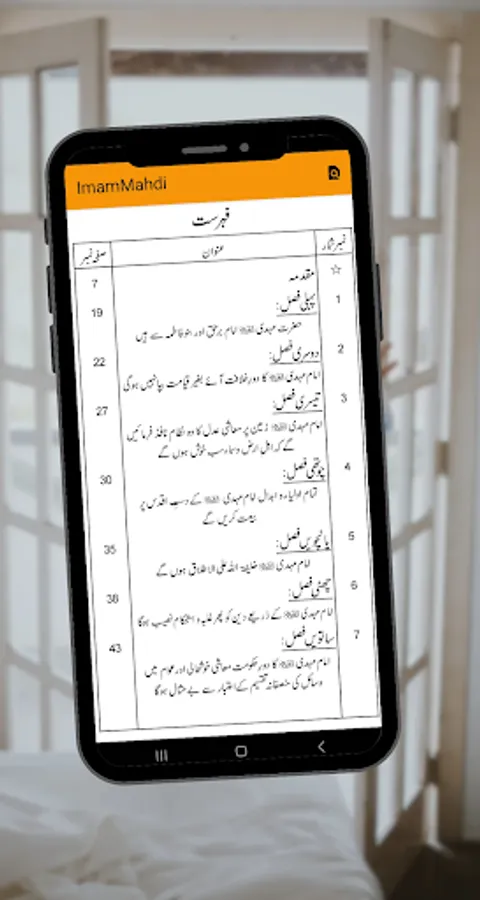 ImamMahdi
فہرست
نمبر شمار عنوان صفحہ نمبر
☆ مقدمہ 7
1 پہلی فصل: 19
حضرت مہدی امام برحق اور بنو فاطمہ سے ہیں
2 دوسری فصل: 22
امام مہدی کا دورِ خلافت آئے بغیر قیامت بپا نہیں ہوگی
3 تیسری فصل: 27
امام مہدی زمین پر معاشی عدل کا وہ نظام نافذ فرمائیں
گے کہ اہل ارض و سما سب خوش ہوں گے
4 چوتھی فصل: 30
تمام اولیاء و ابدال امام مہدی کے دستِ اقدس پر
بیعت کریں گے
5 پانچویں فصل: 35
امام مہدی خلیفۃ اللہ علی الاطلاق ہوں گے
6 چھٹی فصل: 38
امام مہدی کے ذریعے دین کو پھر غلبہ و استحکام نصیب ہوگا
7 ساتویں فصل: 43
امام مہدی کا دورِ حکومت معاشی خوشحالی اور عوام میں
وسائل کی منصفانہ تقسیم کے اعتبار سے بے مثال ہوگا